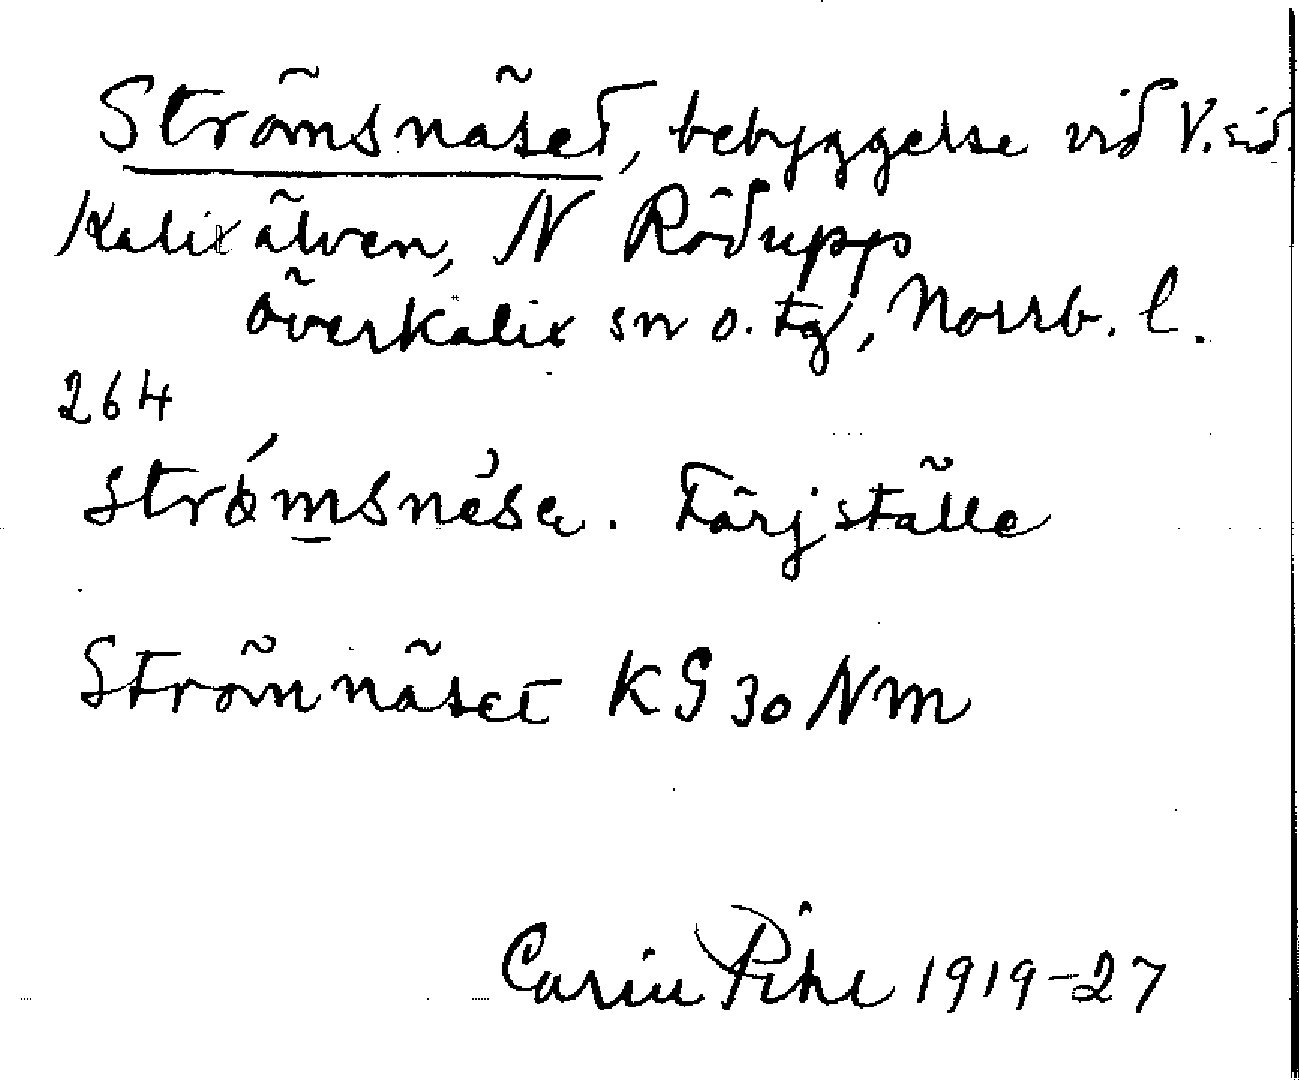 Strömsnäset, bebyggelse vid V. sid.
Kalixälven, N Rödupp
Överkalix sn o. tg, Norrb. l.
264
Strömsnése. Färjställe
Strömnäset KG 30 NM
Carin Pihl 1919-27